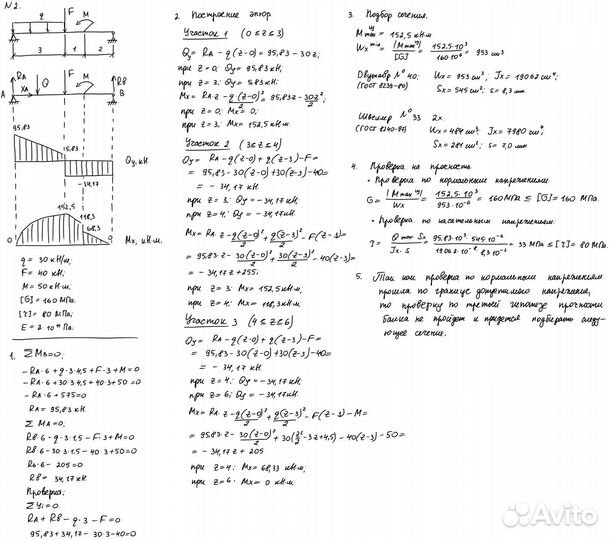 N2.
q
F
M
3
1
2
RA
F
M
RB
A
XA
Q
B
95,83
5,83
Qy, кН
- 34,17
152,5
118,3
68,3
0
0
Mx, кН·м
q = 30 кН/м;
F = 40 кН;
M = 50 кН·м;
[G] = 160 МПа;
[τ] = 80 МПа;
E = 2·10¹¹ Па.
1. ΣMB=0;
-RA·6+q·3·4,5+F·3+M=0
-RA·6+30·3·4,5+40·3+50=0
-RA·6+575=0
RA = 95,83 кН
ΣMA=0;
RB·6-q·3·1,5-F·3+M=0
RB·6-30·3·1.5-40·3+50=0
RB·6-205=0
RB= 34,17 кН.
Проверка:
ΣYi=0.
RA + RB - q·3 - F=0
95,83+34,17-30·3-40=0
2. Построение эпюр
Участок 1 (0≤z≤3)
Qy = RA - q(z-0) = 95,83-30z;
при z=0; Qy = 95,83 кН;
при z=3; Qy= 5.83 кН;
Mx = RA·z - q(z-0)²/2 = 95,83z - 30z²/2;
при z=0; Mx=0;
при z=3; Mx= 152,5 кН·м.
Участок 2 (3≤z≤4)
Qy = RA - q(z-0)+q(z-3)-F=
= 95,83 -30(z-0)+30(z-3)-40=
= - 34,17 кН
при z=3: Qy = -34,17 кН.
при z=4; Qy = -34,17 кН.
Mx = RA·z - q(z-0)²/2 + q(z-3)²/2 - F(z-3)=
= 95,83·z - 30(z-0)²/2 + 30(z-3)²/2 - 40(z-3)=
= -34,17z+255;
при z=3: Mx= 152,5 кН·м;
при z=4: Mx= 118,3 кН·м.
Участок 3 (4≤z≤6)
Qy = RA - q(z-0)+q(z-3)-F=
= 95,83-30(z-0)+30(z-3)-40=
= - 34,17 кН
при z=4; Qy = -34,17 кН;
при z=6; Qy = -34,17 кН.
Mx = RA·z - q(z-0)²/2 + q(z-3)²/2 - F(z-3)-M=
= 95,83·z - 30(z-0)²/2 + 30(z²/2 -3z+4,5) -40(z-3)-50=
= -34,17z + 205
при z=4: Mx= 68,33 кН·м;
при z=6· Mx= 0 кН·м
3. Подбор сечения.
M max = 152,5 кН·м
Wx min = |M max|/[G] = 152,5·10³/160·10⁶ = 953 см³
Двутавр N°40:
(ГОСТ 8239-89)
Wx = 953 см³; Jx = 19062 см⁴;
Sx = 545 см³; s = 8,3 мм
Швеллер N°33 2x:
(ГОСТ 8240-97)
Wx = 484 см³; Jx= 7980 см⁴;
Sx = 281 см³; s = 7,0 мм
4. Проверка на прочность
• Проверка по нормальным напряжениям
G = |M max|/Wx = 152,5·10³/953·10⁻⁶ = 160 МПа ≤ [G]= 160 МПа.
• Проверка по касательным напряжениям:
τ = Q max Sx/Jx·s = 95.83·10³·545·10⁻⁶/19062·10⁻⁸·8,3·10⁻³ = 33 МПа ≤ [τ]= 80 МПа.
5. Так как проверка по нормальным напряжениям
прошла по границе допустимого напряжения,
то проверку по третьей гипотезе прочности
балка не пройдет и придется подбирать следу-
ющее сечение.
Avito